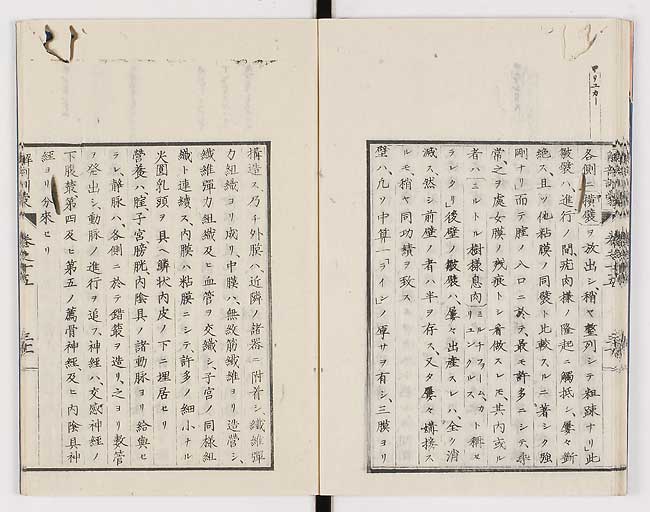 マリユカー
各側ニ横襞ヲ放出シ、稍ヤ整列シテ粗踈ナリ」此
皺襞ハ、進行ノ間、疣肉様ノ隆起ニ觸抵シ、屢々斷
絶ス、且ツ他粘膜ノ同襞ト比較スルニ、著シク強
剛ナリ」而テ腟ノ入口ニ於テ、最モ許多ニシテ、
常之ヲ處女膜ノ残痕トシ看做スレモ、其内或ル
者ハ「ミルトル」樹様息肉
ラレタリ」後壁ノ皺襞ハ、屢々出産スレハ、全ク消
滅ス、然シ前壁ノ者ハ半ヲ存ス、又タ屢々媾接ス
ルモ稍ヤ同功績ヲ致ス
壁ハ凡ソ中算一「ライン」ノ厚サヲ有シ、三膜ヨリ
構造ス乃チ外膜ハ、近隣ノ諸器ニ附着シ、纖維彈
力組織ヨリ成リ、中膜ハ、無紋筋纖維ヨリ造營シ、
纖維彈力組織及ヒ血管ヲ交織シ、子宮ノ同様組
織ト連續ス、内膜ハ粘膜ニシテ、許多ノ細小ナル
尖圓乳頭ヲ具ヘ鱗状内皮ノ下ニ埋居セリ
營養ハ、腟子宮膀胱内陰具ノ諸動脉ヨリ給與セ
ラレ、靜脉ハ、各側ニ於テ錯叢ヲ造リ、之ヨリ数管
ヲ發出シ、動脉ノ進行ヲ追フ、神經ハ、交感神經ノ
下腹叢第四及ヒ第五ノ薦骨神經及ヒ内陰具神
經ヨリ分来セリ